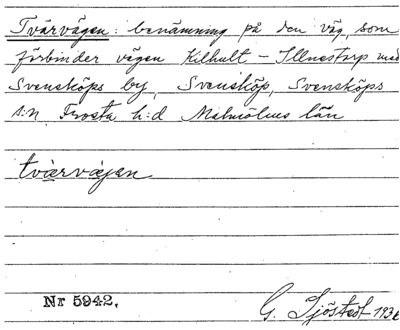 Tvärvägen: benämning på den väg, som
förbinder vägen Kilhult - Illnestorp med
Svensköps by, Svensköp, Svensköps
s:n Frosta h:d Malmöhus län
tværvæjen
Nr 5942.
G. Sjöstedt 1936